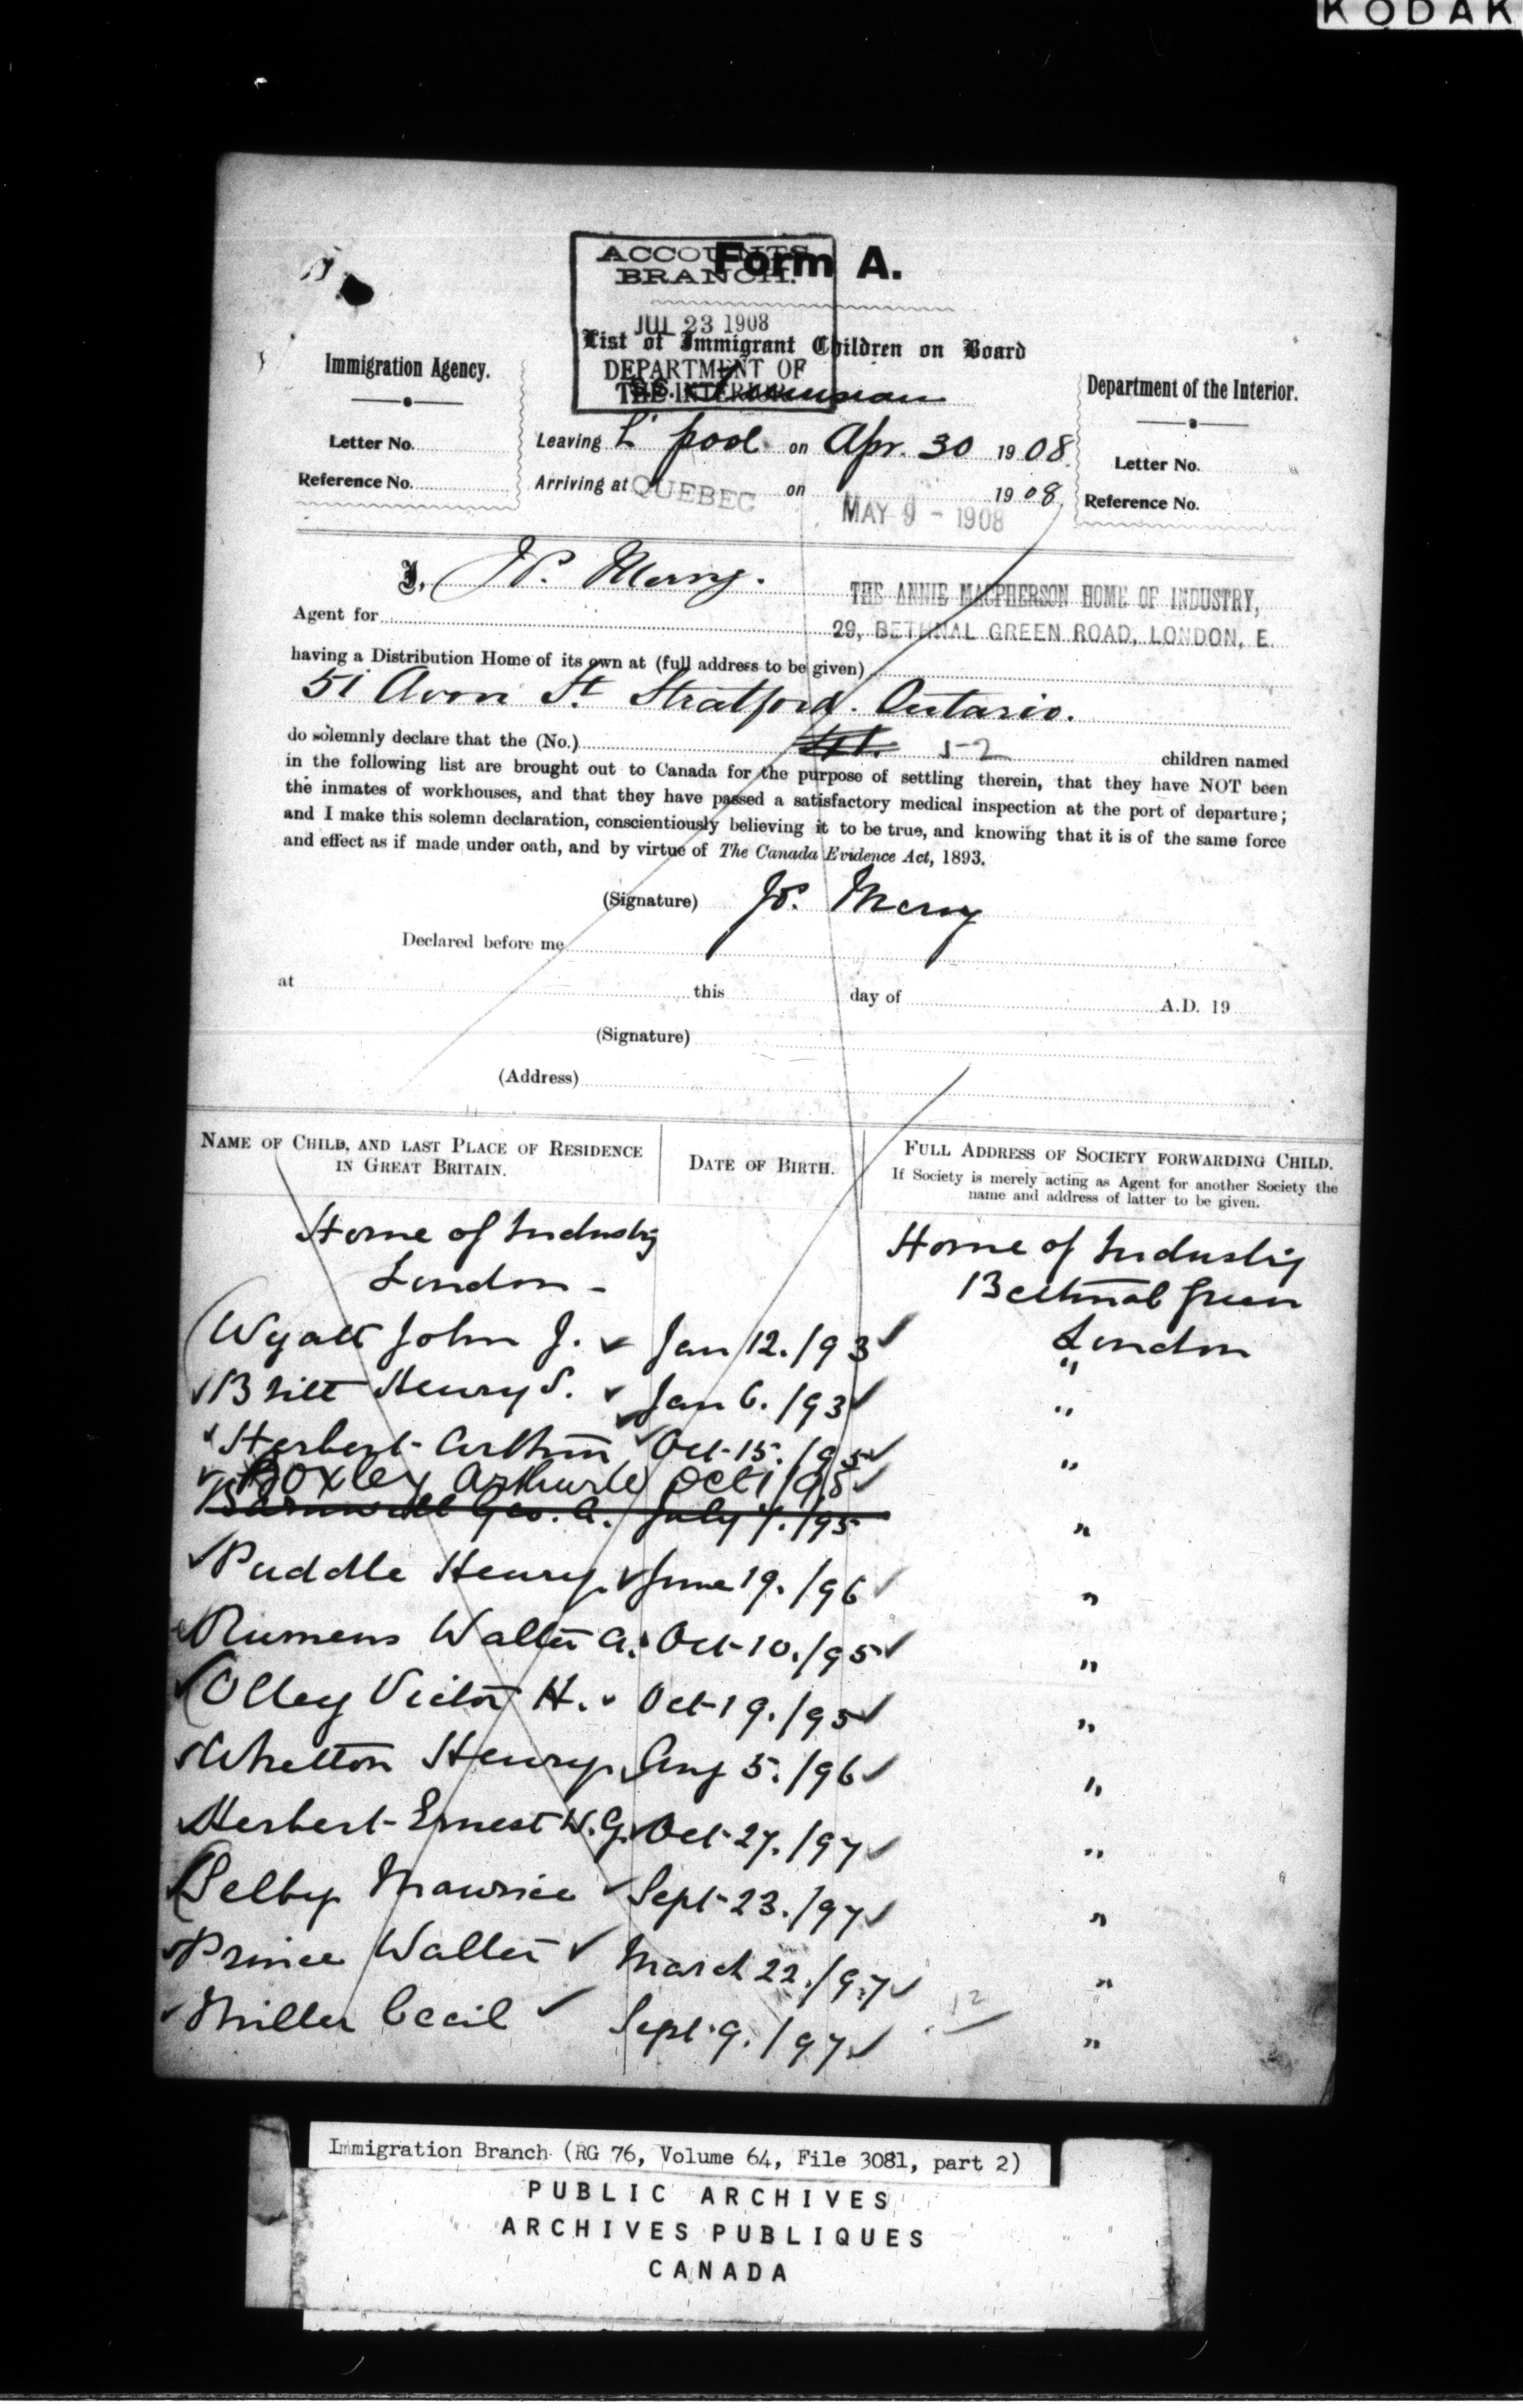 KODAK
ACCOUNTS
BRANCH.
Form A.
JUL 23 1908
List of Immigrant Children on Board
DEPARTMENT OF
THE INTERIOR
S.S.
Immigration Agency.
Department of the Interior.
Letter No.
Leaving L'pool on Apr. 30 1908.
Letter No.
Reference No.
Arriving at QUEBEC on MAY 9 - 1908 1908
Reference No.
I, J.P. Merry.
THE ANNIE MACPHERSON HOME OF INDUSTRY,
Agent for 29, BETHNAL GREEN ROAD, LONDON, E.
having a Distribution Home of its own at (full address to be given)
51 Avon St. Stratford. Ontario.
do solemnly declare that the (No.) 52 children named
in the following list are brought out to Canada for the purpose of settling therein, that they have NOT been
the inmates of workhouses, and that they have passed a satisfactory medical inspection at the port of departure;
and I make this solemn declaration, conscientiously believing it to be true, and knowing that it is of the same force
and effect as if made under oath, and by virtue of The Canada Evidence Act, 1893.
(Signature) J.P. Merry
Declared before me
at this day of A.D. 19
(Signature)
(Address)
NAME OF CHILD, AND LAST PLACE OF RESIDENCE
IN GREAT BRITAIN.
DATE OF BIRTH.
FULL ADDRESS OF SOCIETY FORWARDING CHILD.
If Society is merely acting as Agent for another Society the
name and address of latter to be given.
Home of Industry
London -
Home of Industry
Bethnal Green
London
Wyatt John J. Jan 12./93
"
Britt Henry S. Jan 6./93 "
Herbert Arthur Oct 15./95 "
Boxley Arthur Oct 1/95
Barnwell Geo. A. July 4./95 "
Puddle Henry. June 19./96 "
Rumens Walter A. Oct 10./95 "
Olley Victor H. Oct 19./95 "
Whetton Henry. Aug 5./96 "
Herbert Ernest W.G. Oct 27./97 "
Selby Maurice Sept 23./97 "
Prince Walter March 22./97 "
Miller Cecil Sept. 9./97 12 "
Immigration Branch (RG 76, Volume 64, File 3081, part 2)
PUBLIC ARCHIVES
ARCHIVES PUBLIQUES
CANADA